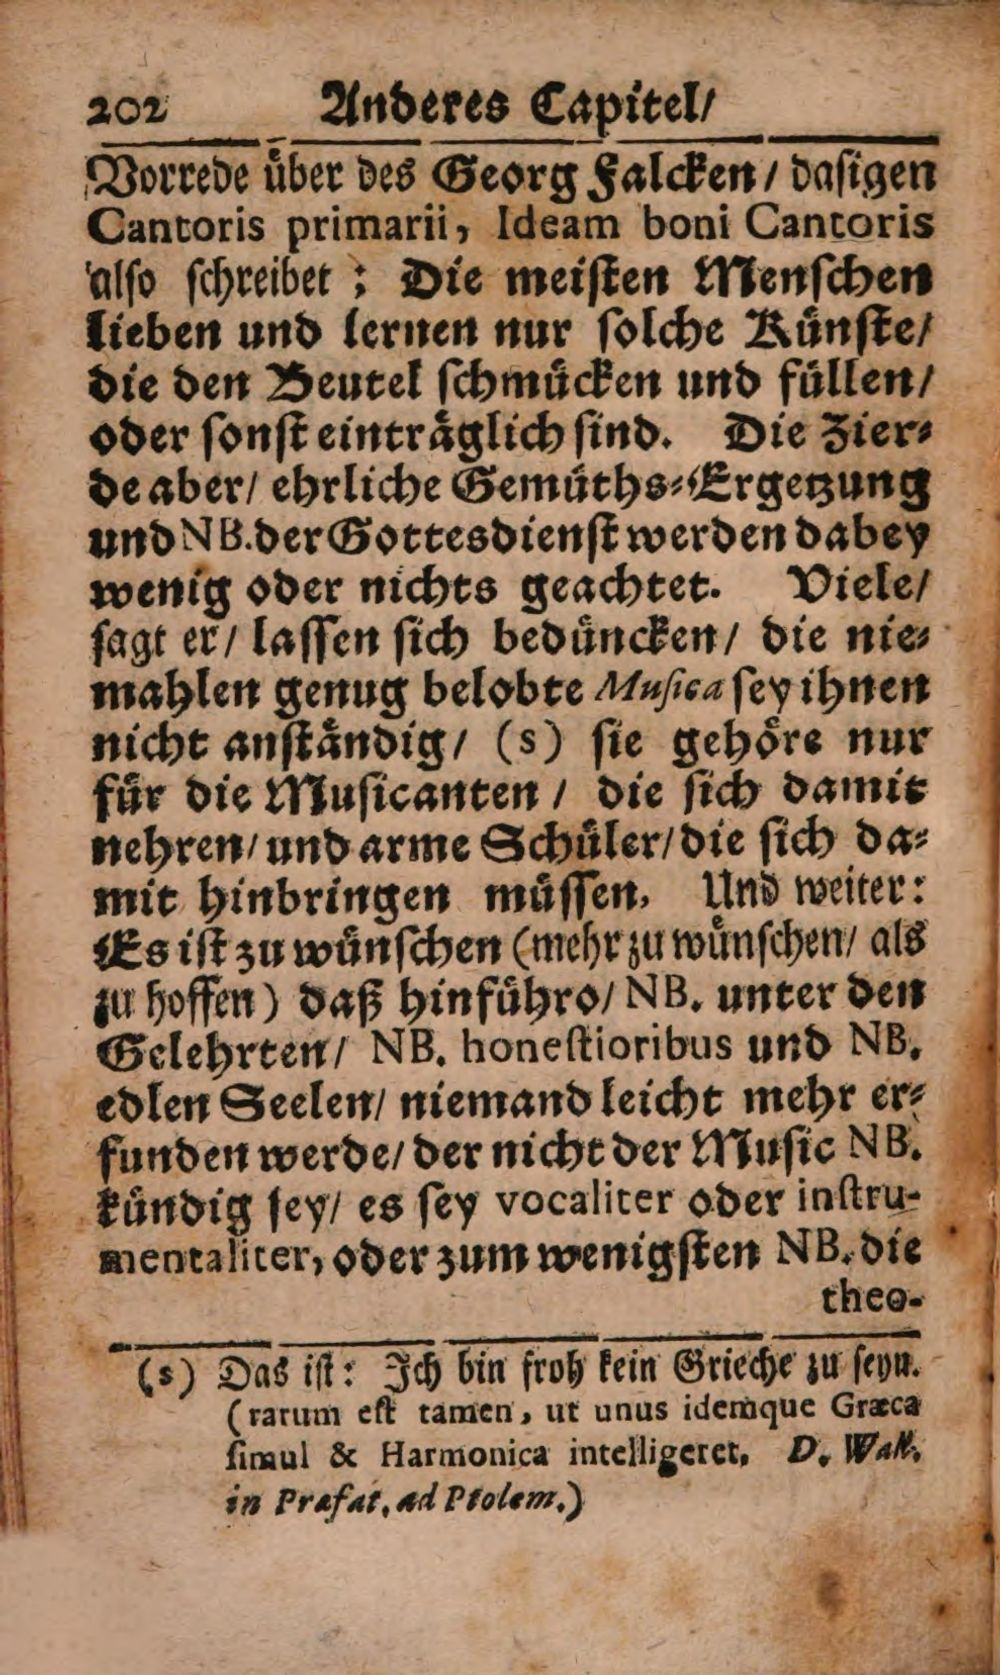 202 Anderes Capitel/
Vorrede über des Georg Falcken/ dasigen
Cantoris primarii, Ideam boni Cantoris
also schreibet: Die meisten Menschen
lieben und lernen nur solche Künste/
die den Beutel schmücken und füllen/
oder sonst einträglich sind. Die Zier-
de aber/ ehrliche Gemüths-Ergetzung
und NB. der Gottesdienst werden dabey
wenig oder nichts geachtet. Viele/
sagt er/ lassen sich bedüncken/ die nie-
mahlen genug belobte Musica sey ihnen
nicht anständig/ (s) sie gehöre nur
für die Musicanten/ die sich damit
nehren/ und arme Schüler/ die sich da-
mit hinbringen müssen. Und weiter:
Es ist zu wünschen (mehr zu wünschen/ als
zu hoffen) daß hinführo/ NB. unter den
Gelehrten/ NB. honestioribus und NB.
edlen Seelen/ niemand leicht mehr er-
funden werde/ der nicht der Music NB.
kündig sey/ es sey vocaliter oder instru-
mentaliter, oder zum wenigsten NB. die
theo-
(s) Das ist: Ich bin froh kein Grieche zu seyn.
(rarum est tamen, ut unus idemque Græca
simul & Harmonica intelligeret, D. Wall.
in Præfat. ad Ptolem.)